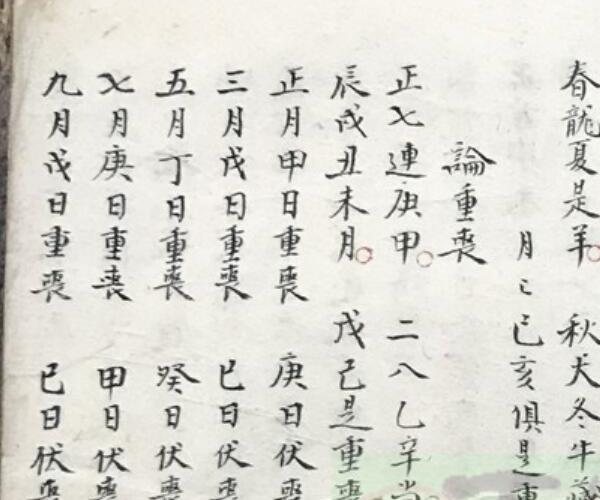 春龍夏是羊 秋犬冬牛
月〻已亥俱是重
論重喪
正七連庚甲 二八乙辛當
辰戌丑未月 戊己是重喪
正月甲日重喪 庚日伏喪
三月戊日重喪 巳日伏喪
五月丁日重喪 癸日伏喪
七月庚日重喪 甲日伏喪
九月戊日重喪 巳日伏喪